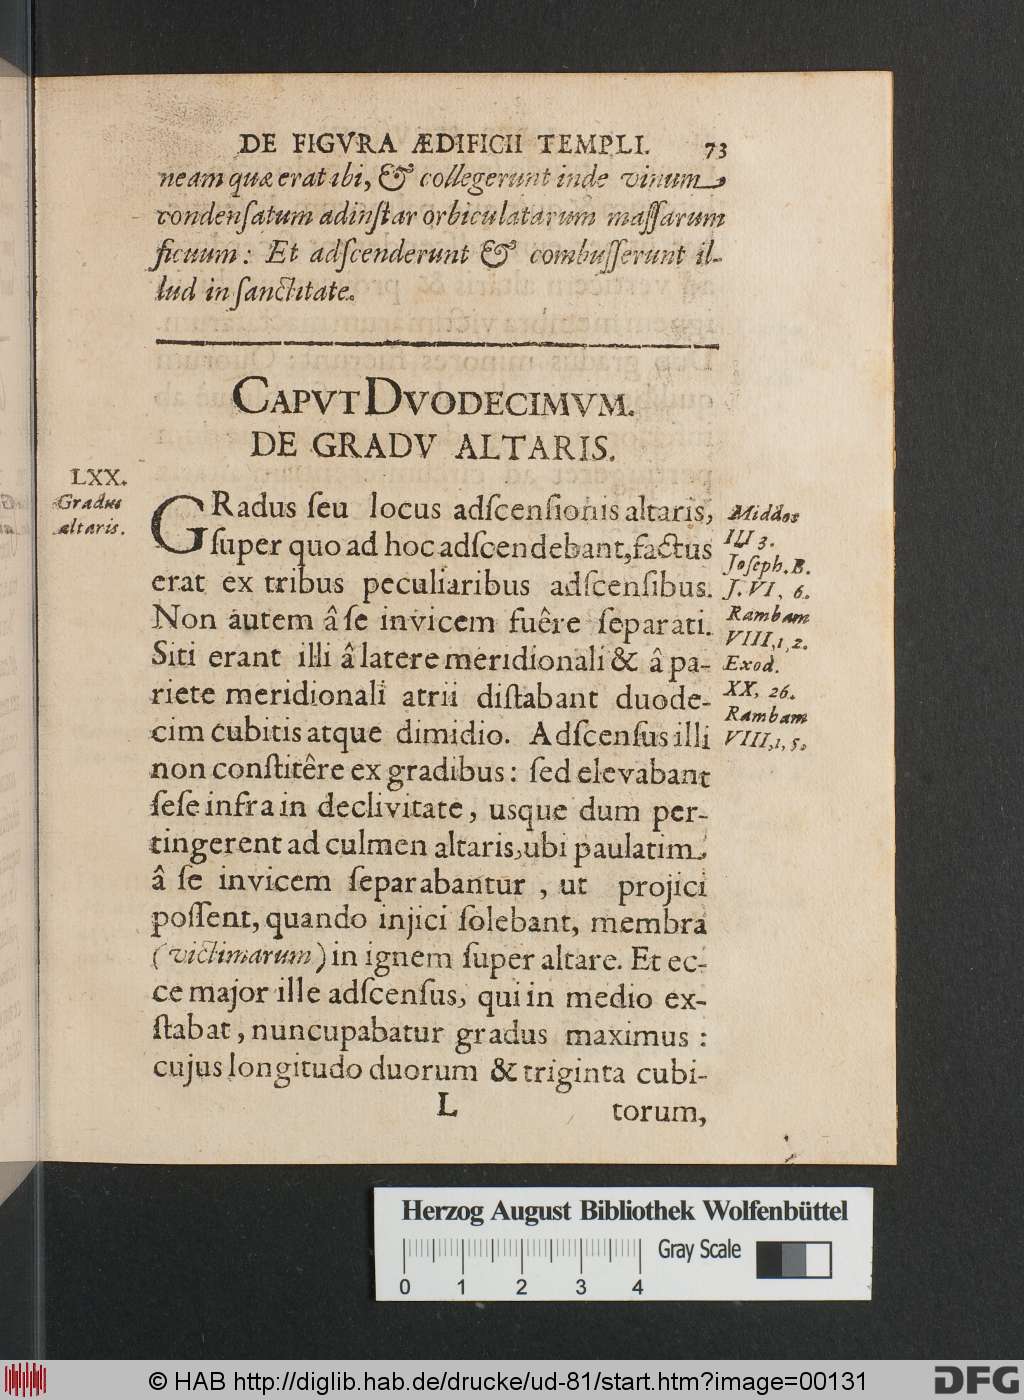 DE FIGVRA ÆDIFICII TEMPLI. 73
neam quæ erat ibi, & collegerunt inde vinum
condenſatum adinſtar orbiculatarum maſſarum
ficuum: Et adſcenderunt & combuſſerunt il-
lud in ſanctitate.
CAPVT DVODECIMVM.
DE GRADV ALTARIS.
LXX.
Gradus
altaris.
GRadus ſeu locus adſcenſionis altaris,
ſuper quo ad hoc adſcendebant, factus
erat ex tribus peculiaribus adſcenſibus.
Non autem â ſe invicem fuêre ſeparati.
Siti erant illi â latere meridionali & â pa-
riete meridionali atrii diſtabant duode-
cim cubitis atque dimidio. Adſcenſus illi
non conſtitêre ex gradibus: ſed elevabant
ſeſe infra in declivitate, usque dum per-
tingerent ad culmen altaris, ubi paulatim
â ſe invicem ſeparabantur, ut projici
poſſent, quando injici ſolebant, membra
(victimarum) in ignem ſuper altare. Et ec-
ce major ille adſcenſus, qui in medio ex-
ſtabat, nuncupabatur gradus maximus:
cujus longitudo duorum & triginta cubi-
L torum,
Middos
III 3.
Joſeph. B.
J. VI, 6.
Rambam
VIII, 1, 2.
Exod.
XX, 26.
Rambam
VIII, 1, 5.
Herzog August Bibliothek Wolfenbüttel
Gray Scale
0 1 2 3 4
© HAB http://diglib.hab.de/drucke/ud-81/start.htm?image=00131
DFG